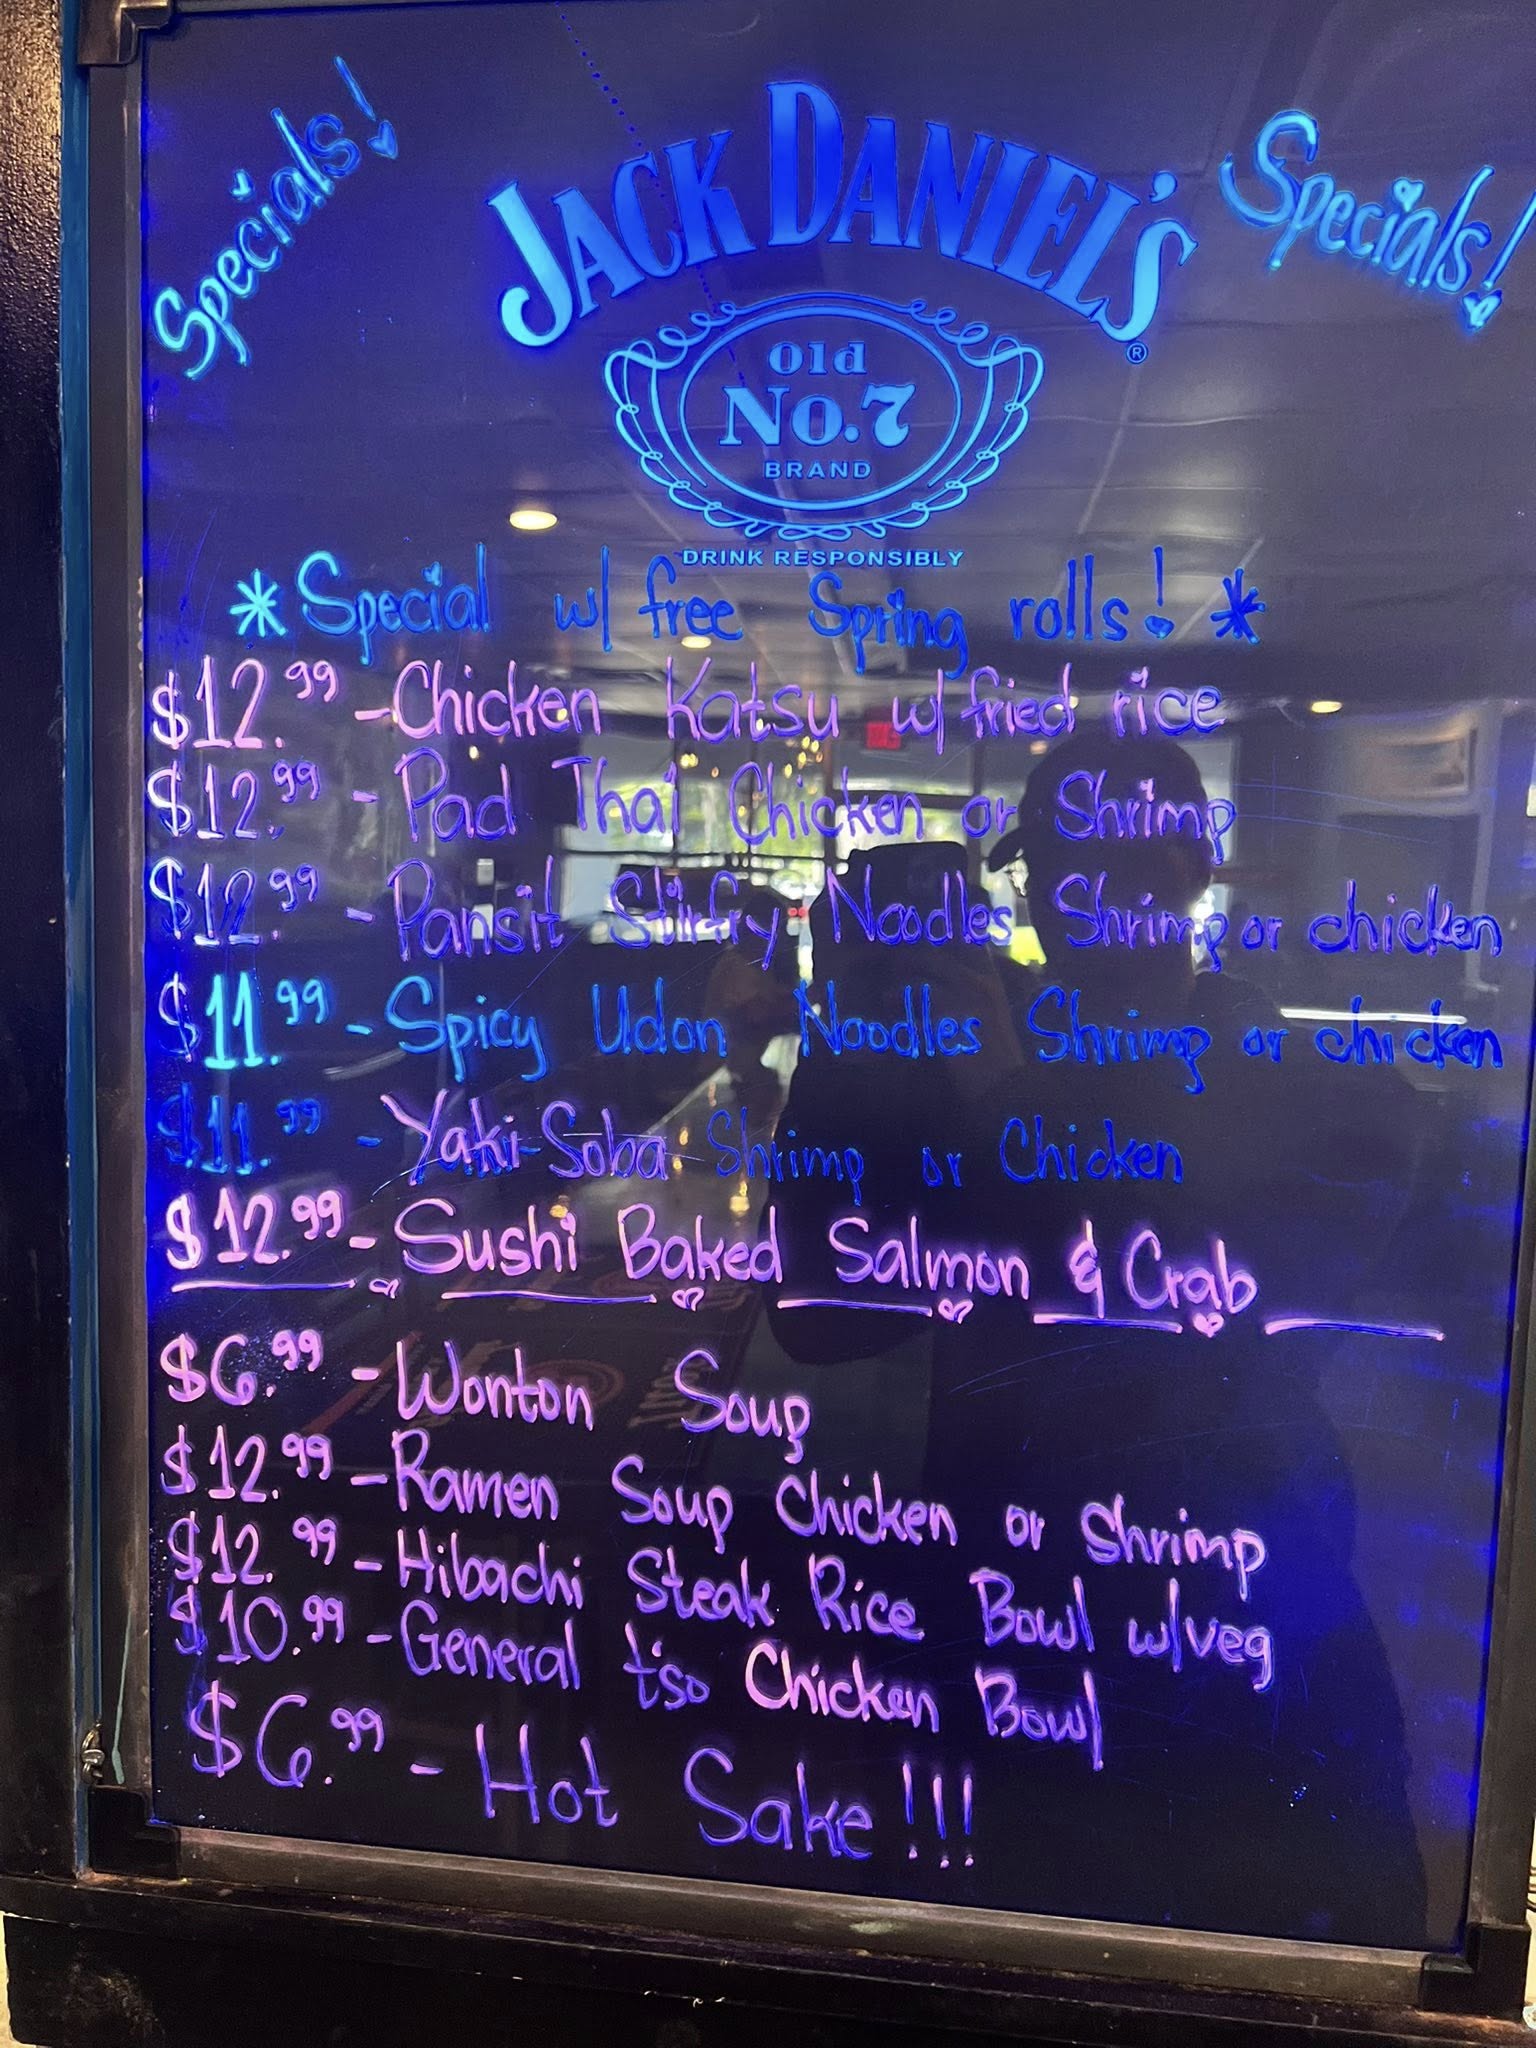 Specials!
JACK DANIEL'S®
Specials!
Old
No.7
BRAND
DRINK RESPONSIBLY
*Special w/ free Spring rolls!*
$12.99 - Chicken Katsu w/ fried rice
$12.99 - Pad Thai Chicken or Shrimp
$12.99 - Pansit Stirfry Noodles Shrimp or chicken
$11.99 - Spicy Udon Noodles Shrimp or chicken
$11.99 - Yaki-Soba Shrimp or Chicken
$12.99 - Sushi Baked Salmon & Crab
$6.99 - Wonton Soup
$12.99 - Ramen Soup Chicken or Shrimp
$12.99 - Hibachi Steak Rice Bowl w/veg
$10.99 - General t'so Chicken Bowl
$6.99 - Hot Sake!!!